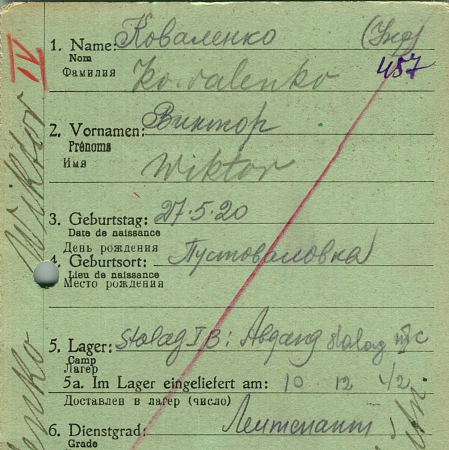 IV
1. Name: Коваленко
Nom
Фамилия Kowalenko
457
2. Vornamen: Виктор
Prénoms
Имя Wiktor
3. Geburtstag: 27.5.20
Date de naissance
День рождения
4. Geburtsort: Пустоваловка
Lieu de naissance
Место рождения
5. Lager: Stalag I B: Abgang Stalag
Camp
Лагерь
5a. Im Lager eingeliefert am: 10 12 42
Доставлен в лагер (число)
6. Dienstgrad: Лейтенант
Grade
Wiktor